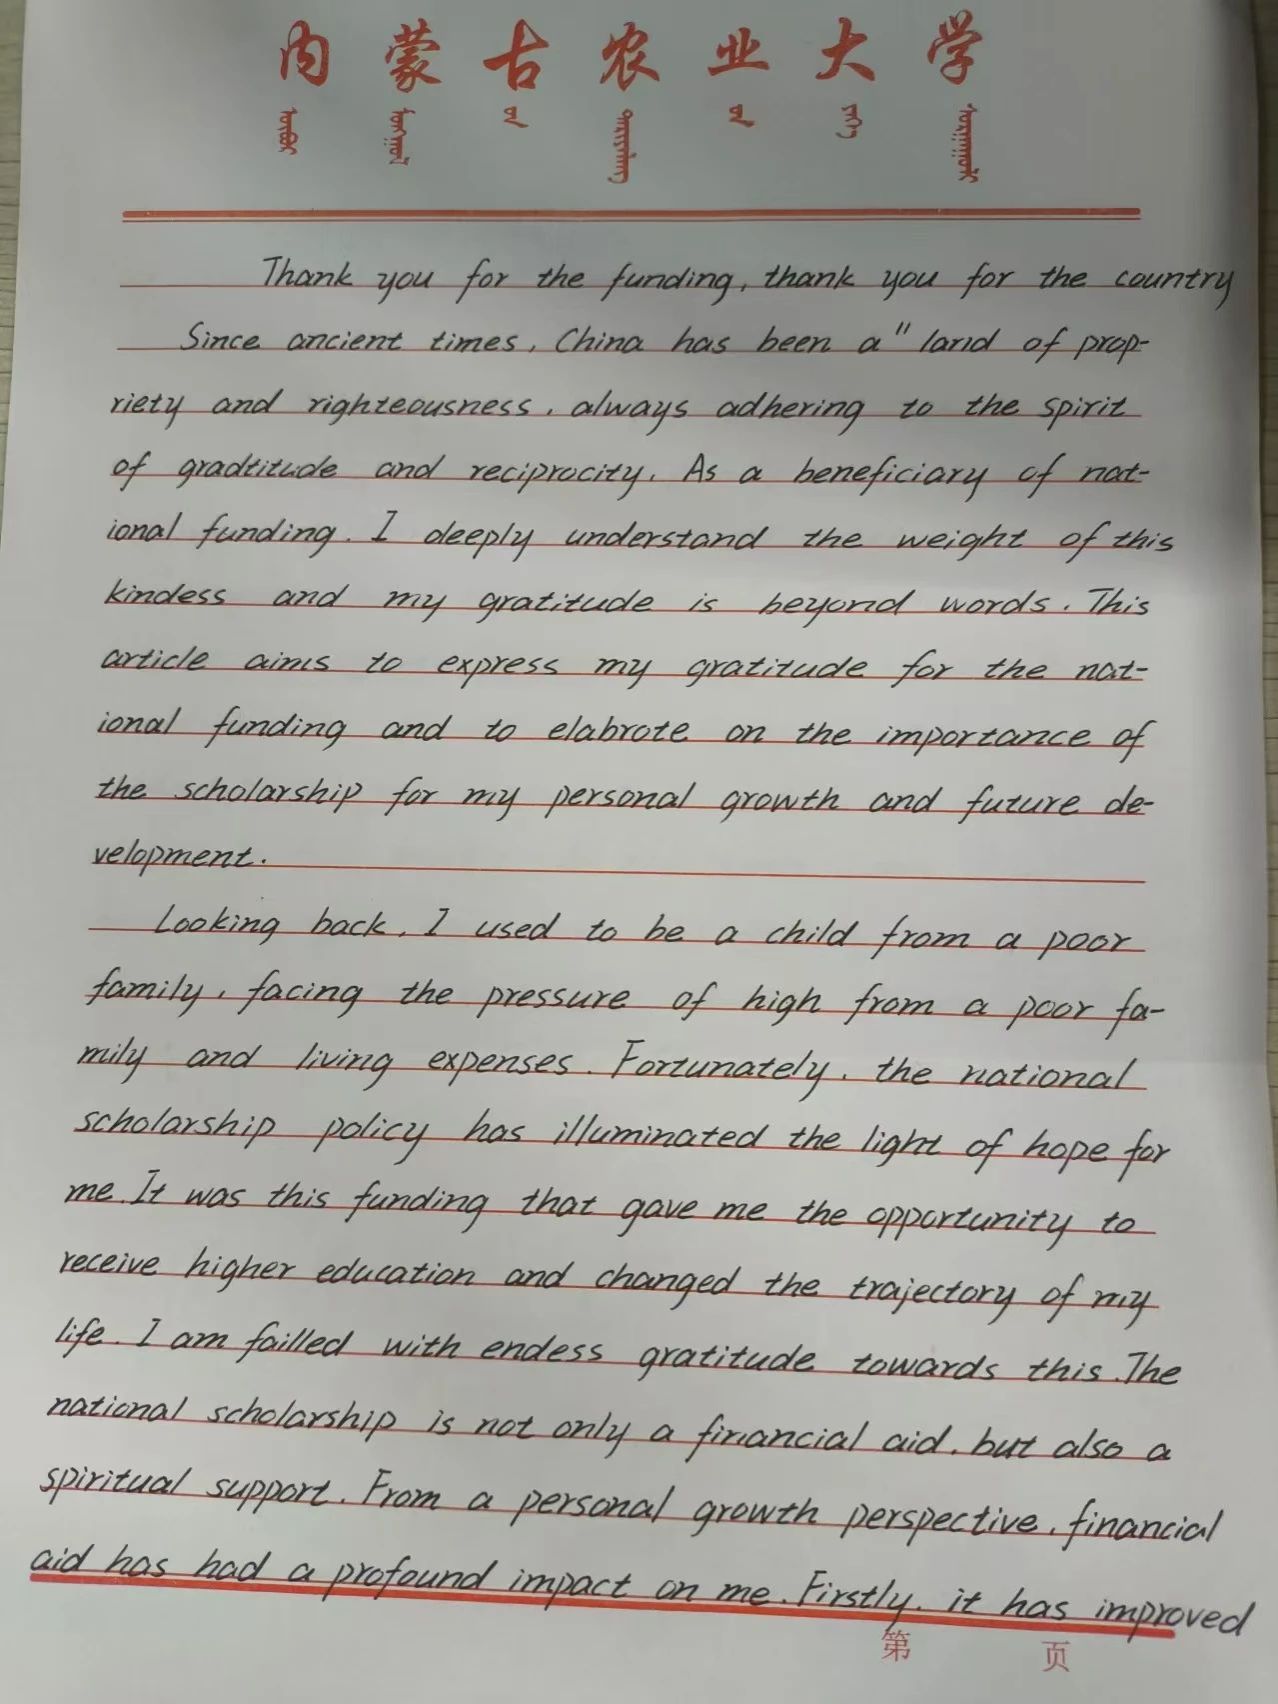 内蒙古农业大学
Thank you for the funding, thank you for the country
Since ancient times, China has been a " land of prop-
riety and righteousness, always adhering to the spirit
of gradtitude and reciprocity. As a beneficiary of nat-
ional funding. I deeply understand the weight of this
kindess and my gratitude is beyond words. This
article aims to express my gratitude for the nat-
ional funding and to elabrote on the importance of
the scholarship for my personal growth and future de-
velopment.
Looking back, I used to be a child from a poor
family, facing the pressure of high from a poor fa-
mily and living expenses. Fortunately, the national
scholarship policy has illuminated the light of hope for
me. It was this funding that gave me the opportunity to
receive higher education and changed the trajectory of my
life. I am failled with endess gratitude towards this. The
national scholarship is not only a financial aid, but also a
spiritual support. From a personal growth perspective, financial
aid has had a profound impact on me. Firstly, it has improved
第 页